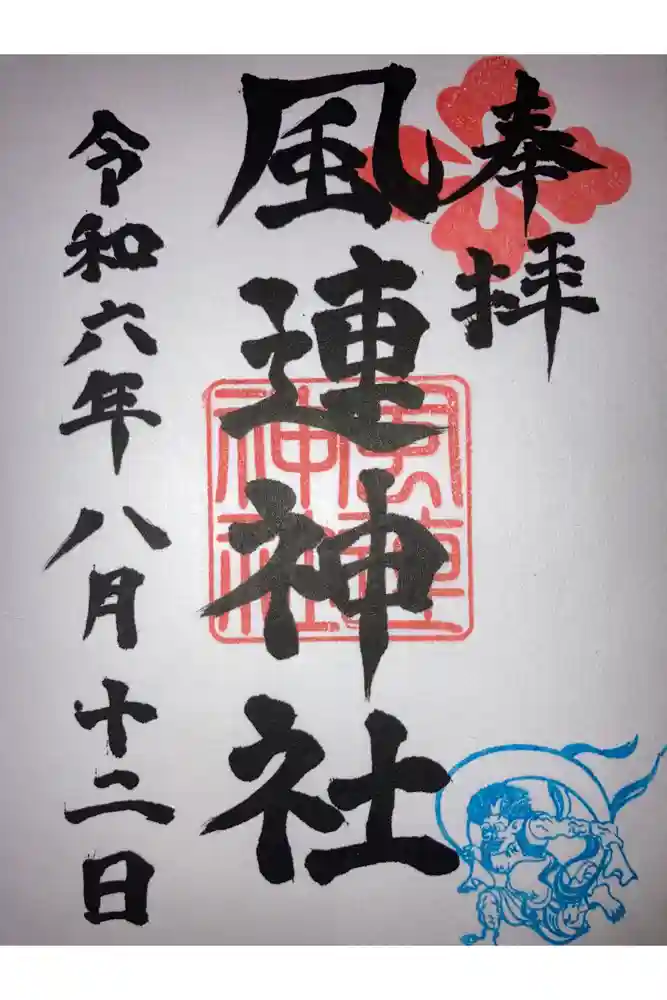 奉拝
風連神社
風連神社
令和六年八月十二日